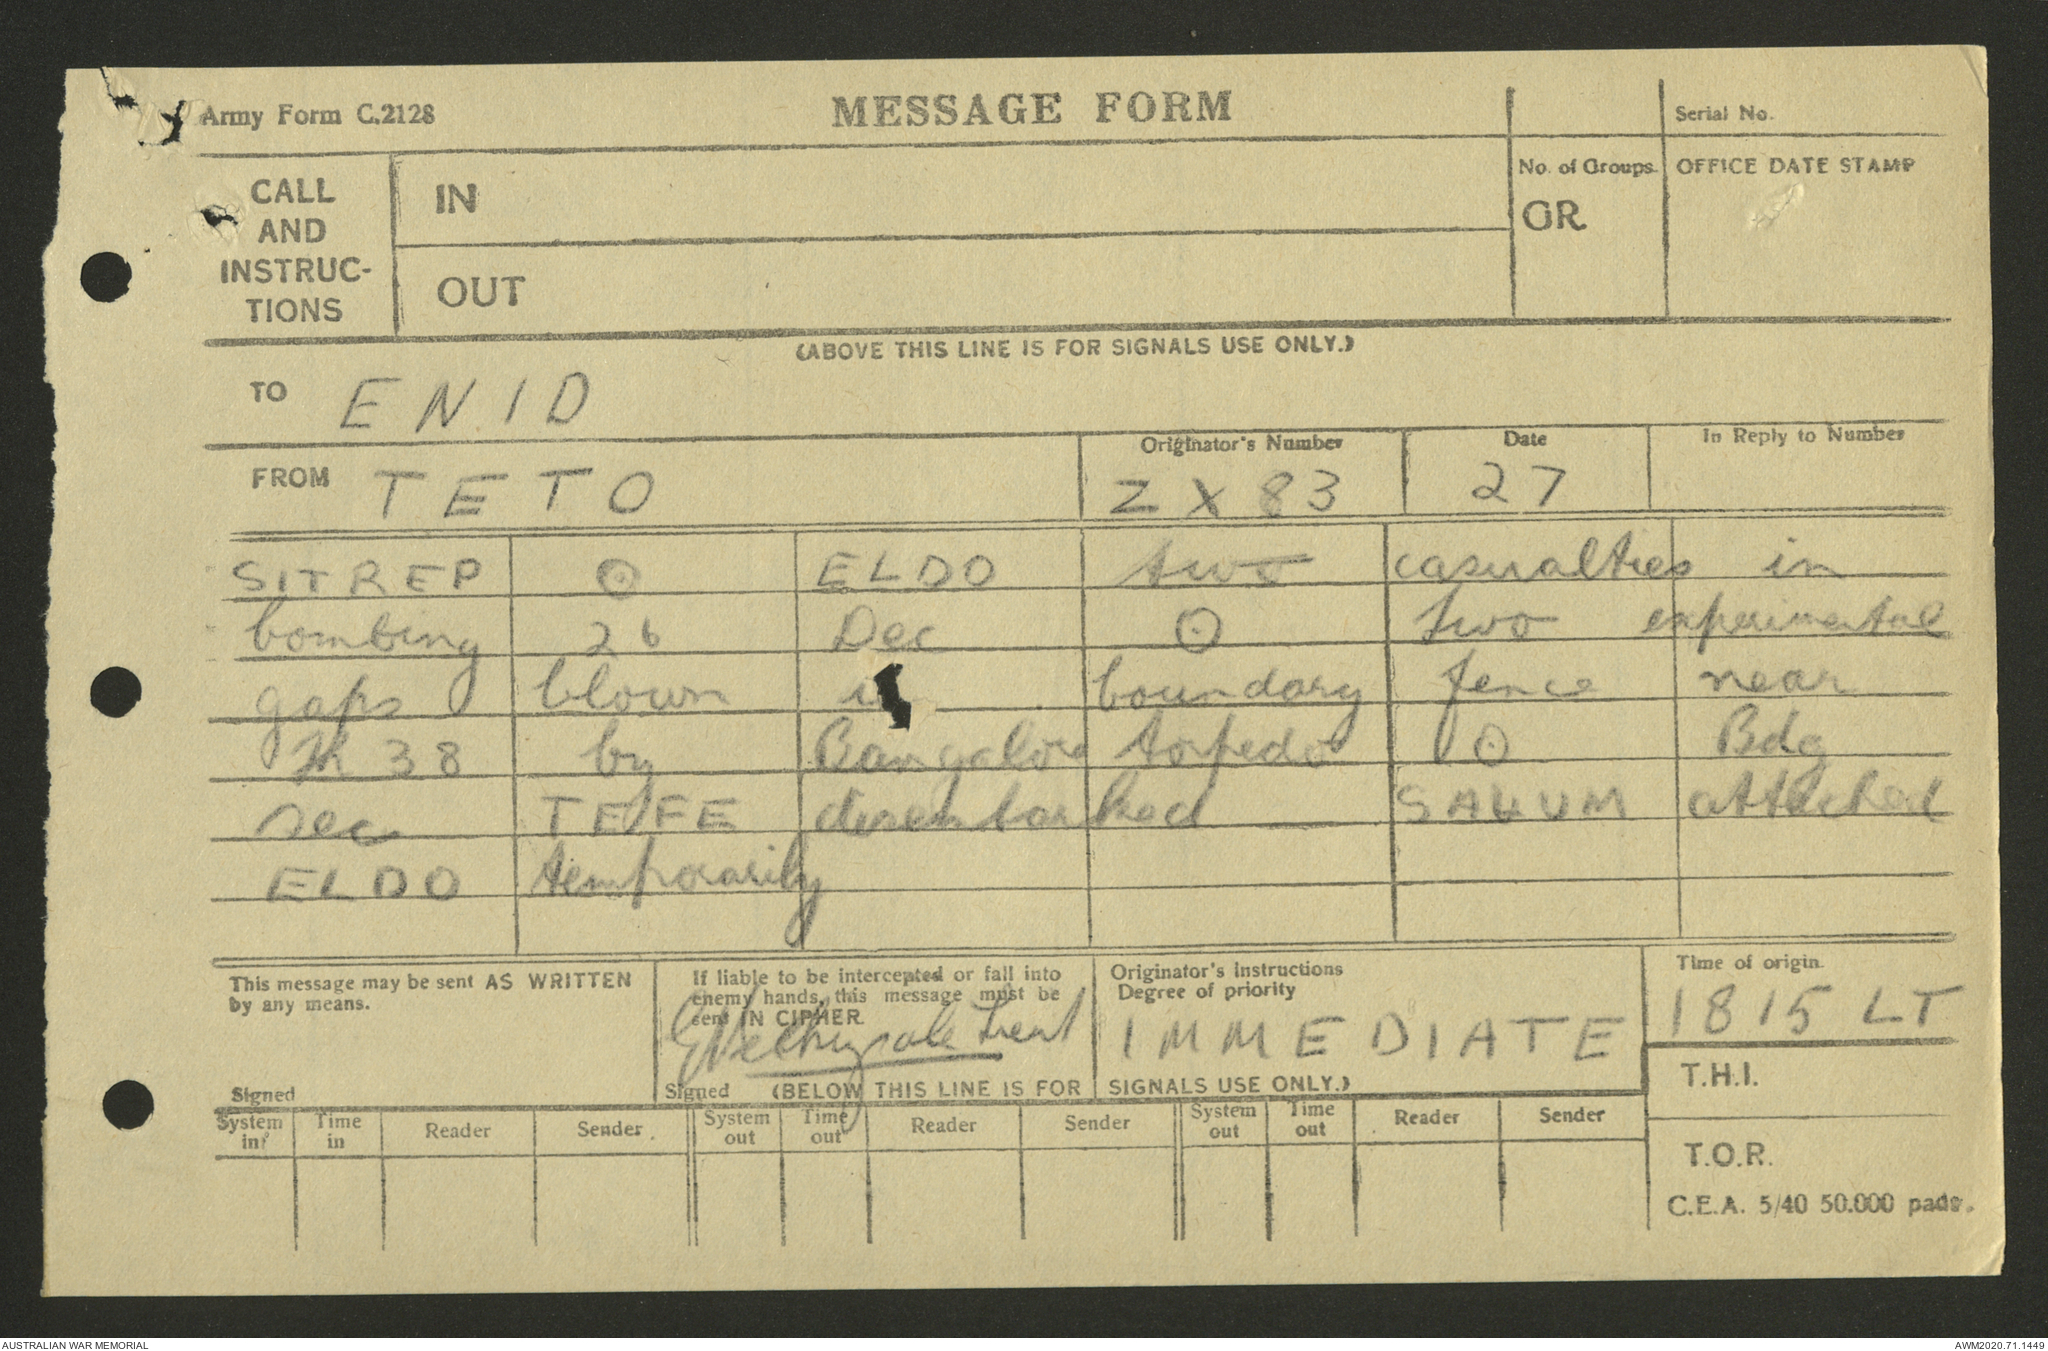 Army Form C.2128
MESSAGE FORM
Serial No.
CALL
AND
INSTRUC-
TIONS
IN
OUT
No. of Groups.
GR
OFFICE DATE STAMP
(ABOVE THIS LINE IS FOR SIGNALS USE ONLY.)
TO ENID
FROM TETO
Originator's Number
ZX83
Date
27
In Reply to Number
SITREP ⊙ ELDO two casualties in
bombing 26 Dec ⊙ two experimental
gaps blown in boundary fence near
38 by Bangalore torpedo ⊙ Bdg
sec TEFE disembarked attached
ELDO temporarily
This message may be sent AS WRITTEN
by any means.
Signed
If liable to be intercepted or fall into
enemy hands, this message must be
sent IN CIPHER.
Lieut
Signed
Originator's Instructions
Degree of priority
IMMEDIATE
Time of origin.
1815 LT
T.H.I.
T.O.R.
(BELOW THIS LINE IS FOR SIGNALS USE ONLY.)
System in Time in Reader Sender. System out Time out Reader Sender System out Time out Reader Sender
C.E.A. 5/40 50.000 pads.
AUSTRALIAN WAR MEMORIAL
AWM2020.71.1449